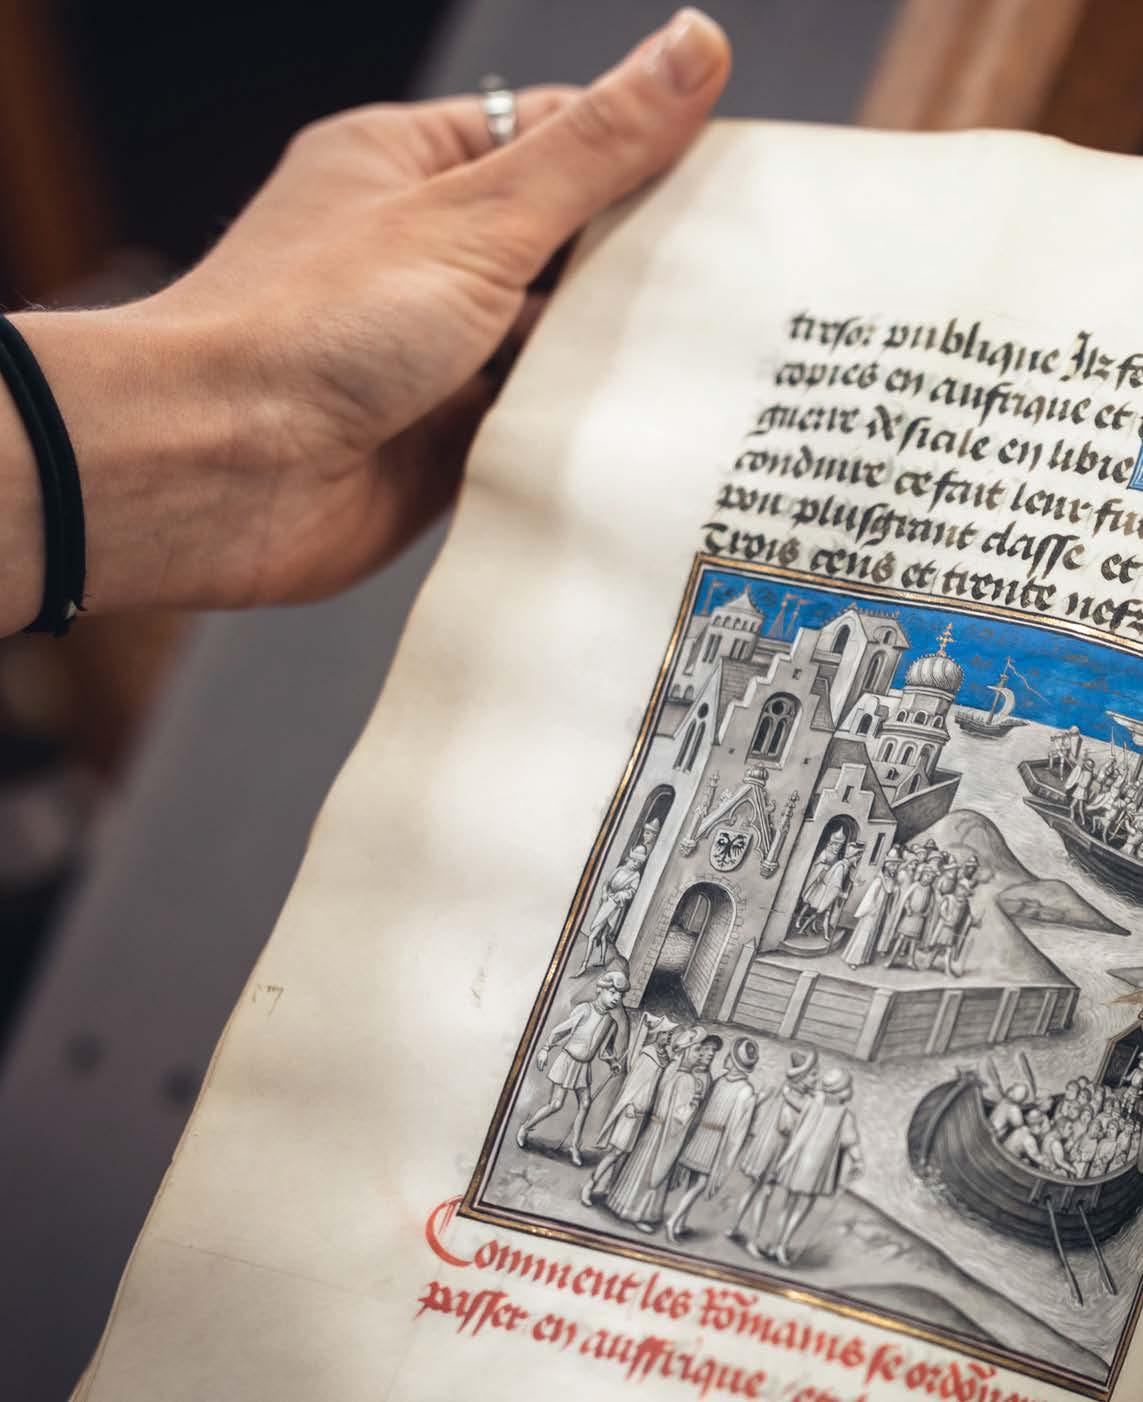 tresor publique Ilz fe
copies en aufrique et
guerre de sicile en libie
conduire ce fait leur fu
pou plusgrant classe et
Trois cens et trente nefz
Comment les Rom̃ains se ordõn
passer en auffrique et